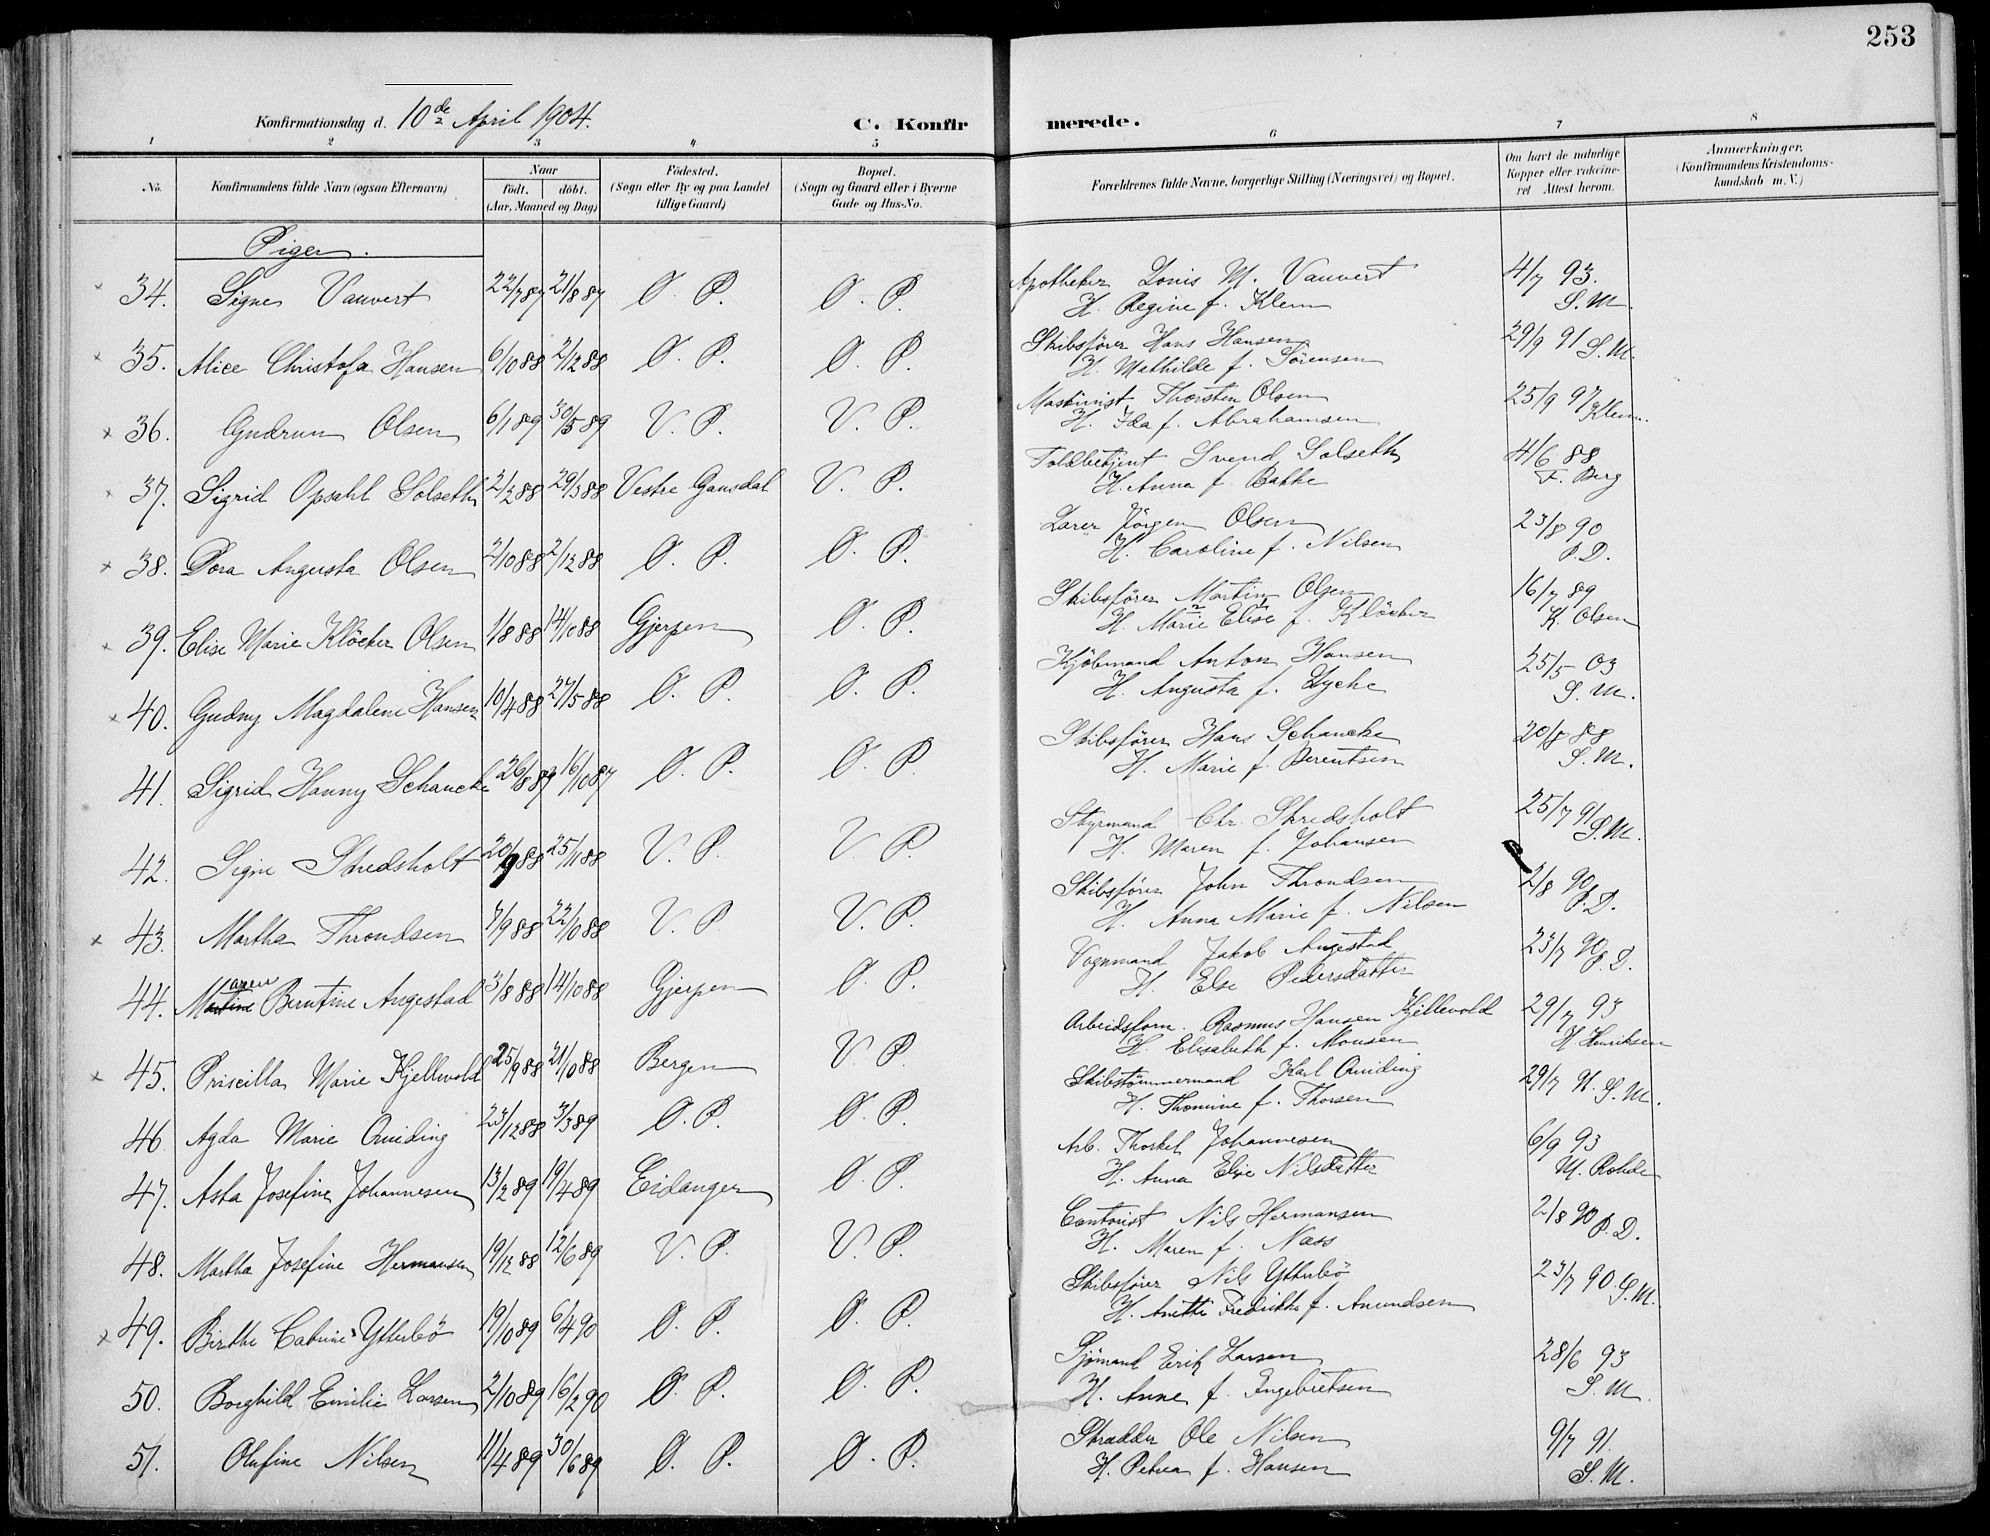 253
Konfirmationsdag d. 10de April 1904.
C. Konfirmerede.
1 2 3 4 5 6 7 8
No. Konfirmandens fulde Navn (ogsaa Efternavn) Naar født. døbt. (Aar, Maaned og Dag) Fødested. (Sogn eller By og paa Landet tillige Gaard) Bopæl. (Sogn og Gaard eller i Byerne Gade og Hus-No. Forældrenes fulde Navne, borgerlige Stilling (Næringsvei) og Bopæl. Om havt de naturlige Kopper eller vaccineret Attest herom. Anmærkninger. (Konfirmandens Kristendomskundskab m. V.)
Piger.
34. Signe Vauvert 22/7 87 21/8 87 Ø. P. Ø. P. Apotheker Louis M. Vauvert 4/7 93.
H. Regine f. Klem S. M.
35. Alice Christofa Hansen 6/10 88 2/12 88 Ø. P. Ø. P. Skibsfører Hans Hansen 29/9 91 S. M.
H. Mathilde f. Sörensen
36. Gudrun Olsen 6/1 89 30/5 89 V. P. V. P. Maskinist Thorsten Olsen 25/9 97 Klem.
H. Ida f. Abrahamsen
37. Sigrid Opsahl Solseth 2/2 88 29/3 88 Vestre Gausdal V. P. Toldbetjent Svend Solseth 4/6 88
H. Anna f. Bakke F. Berg
38. Dora Augusta Olsen 2/10 88 2/12 88 Ø. P. Ø. P. Lærer Jörgen Olsen 23/8 90
H. Caroline f. Nilsen P. D.
39. Elise Marie Klöcker Olsen 1/8 88 14/10 88 Gjerpen Ø. P. Skibsfører Martin Olsen 16/7 89
H. Marie Elise f. Klöcker K. Olsen
40. Gudny Magdalene Hansen 10/4 88 27/5 88 Ø. P. Ø. P. Kjöbmand Anton Hansen 25/5 03
H. Augusta f. Lyche S. M.
41. Sigrid Hanny Schancke 26/8 87 16/10 87 Ø. P. Ø. P. Skibsfører Hans Schancke 20/8 88
H. Marie f. Berentsen S. M.
42. Signe Skredsholt 20/9 88 25/11 88 V. P. V. P. Styrmand Chr. Skredsholt 25/7 91 S. M.
H. Maren f. Johansen
43. Martha Throndsen 7/9 88 22/10 88 V. P. V. P. Skibsfører John Throndsen 2/8 90 P. D.
H. Anna Marie f. Nilsen
44. Maren Berntine Angestad 3/8 88 14/10 88 Gjerpen Ø. P. Vognmand Jakob Angestad 23/7 90 P. D.
H. Else Pedersdatter
45. Priscilla Marie Kjellevold 25/9 88 21/10 88 Bergen V. P. Arbeidsform. Rasmus Hansen Kjellevold 29/7 93
H. Elisabeth f. Monsen H. Henriksen
46 Agda Marie Quiding 23/12 88 3/3 89 Ø. P. Ø. P. Skibstömmermand Karl Quiding 29/7 91. S. M.
H. Thomine f. Thorsen
47. Asta Josefine Johannesen 13/2 89 19/4 89 Eidanger Ø. P. Arb. Thorkel Johannesen 6/9 93
H. Anna Elise Nilsdatter M. Rohde
48. Martha Josefine Hermansen 19/12 88 12/6 89 V. P. V. P. Contorist Nils Hermansen 2/8 90 P. D.
H. Maren f. Næss
49. Birthe Catrine Ytterbö 19/10 89 6/4 90 Ø. P. Ø. P. Skibsfører Nils Ytterbö 23/7 90. S. M.
H. Anette Fredrikke f. Amundsen
50. Borghild Emilie Larsen 2/10 89 16/2 90 Ø. P. Ø. P. Sjömand Erik Larsen 28/6 93
H. Anne f. Ingebretsen S. M.
51. Olufine Nilsen 11/4 89 30/6 89 Ø. P. Ø. P. Skrædder Ole Nilsen 9/7 91.
H. Petrea f. Hansen S. M.